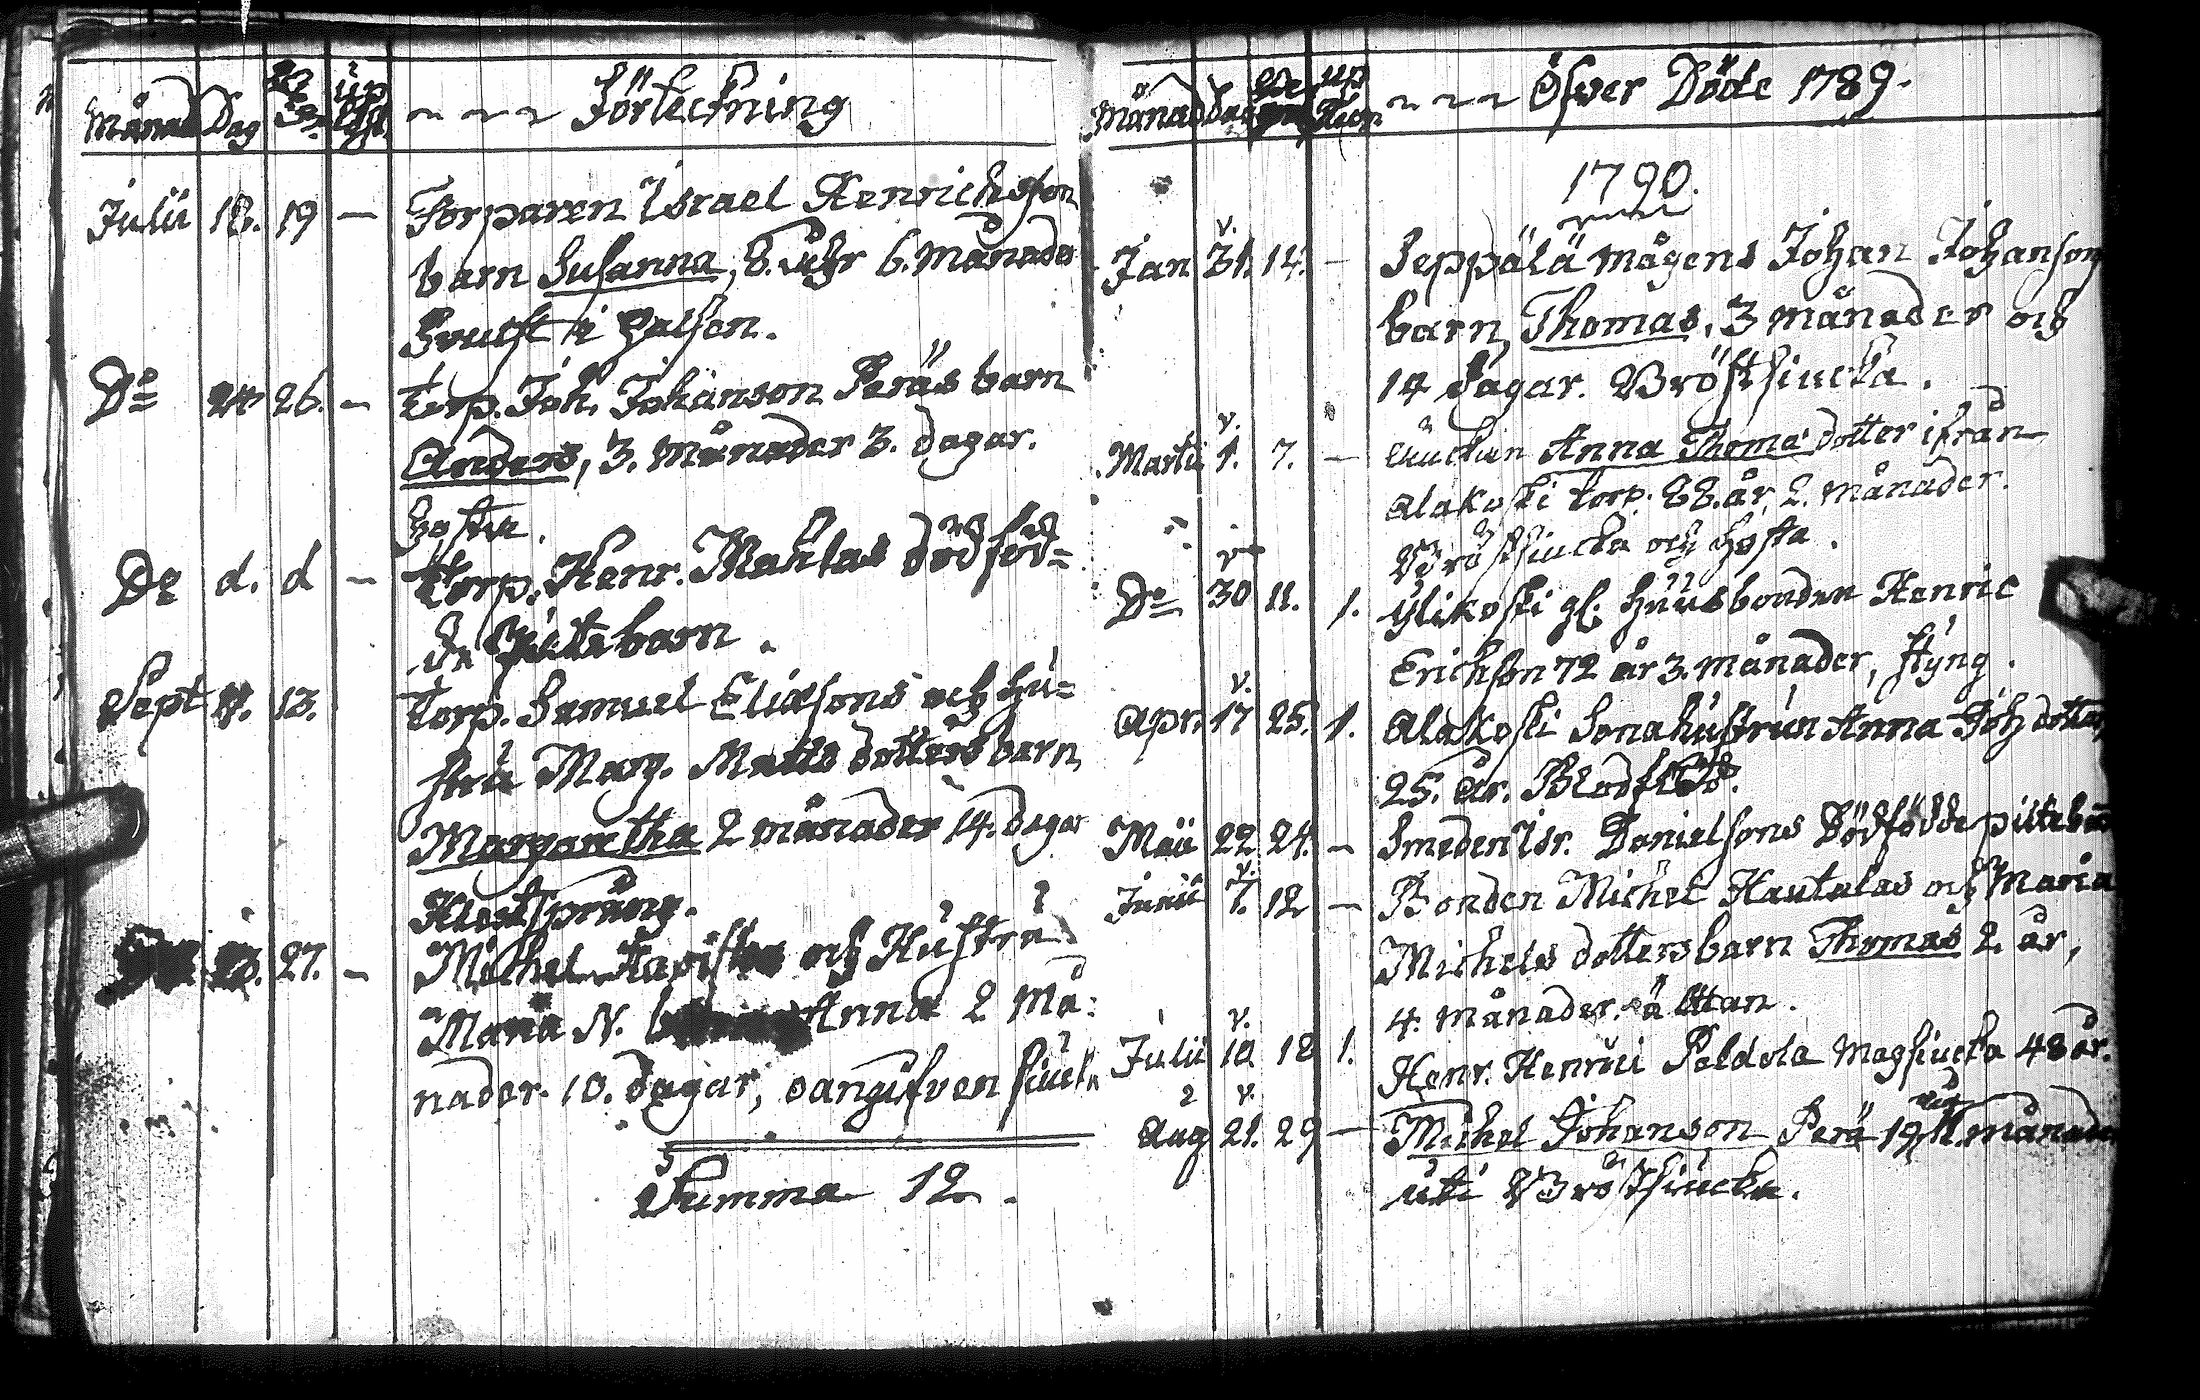 Månad Dag ~ ~ ~ Förteckning
Julii 18. 19 — Torparen Israel Henrichsson
barn Susanna, 8. åhr 6. månader
Svulst i halsen.
Do 24 26. — torp. Joh. Johanson Peräs barn
Anders, 3. månader 3. dagar.
hosta.
Do d. d — torp. Henr. Mantas dödföd=
da pilte barn.
Sept 13. torp. Samuel Eliæsons och hu=
stru Marg. Matts dotters barn
Margaretha 2 månader 14. dagar
27. — Michel och Hustru
Maria N. Anna 2 må:
nader. 10. dagar, oangifven siuck
Summa 12.
Månad dag ~ ~ ~ Öfver Döde 1789.
1790.
Jan v. 31. 14. — Seppälä mågens Johan Johanson
barn, Thomas, 3 månader och
14 dagar. Bröstsiucka.
Martii v. 1. 7. — Enckan Anna Thomædotter ifrån
Alakoski torp. 88. år, 2. månader.
Bröstsiucka och hosta.
Do v 30 11. 1. Ylikoski gl. husbonden Henric
Erichson 72 år 3. månader, styng.
Apr. v. 17 25. 1. Alakoski Sonahustrun Anna Joh dotter
25. år. Blodflöd.
Maii 22 24. — Smeden Isr. Danielsons Dödfödde piltebarn
Junii v. 7. 12 — Bonden Michel Hautalas och Maria
Michels dotters barn Thomas 2. år,
4. månader. ältan.
Julii v. 10 18 1. Henr. Henrici Peldola Magsiucka 48 år.
Aug v. 21. 29 — Michel Johanson Perä 19 11. månader
uti Bröstsiucka.